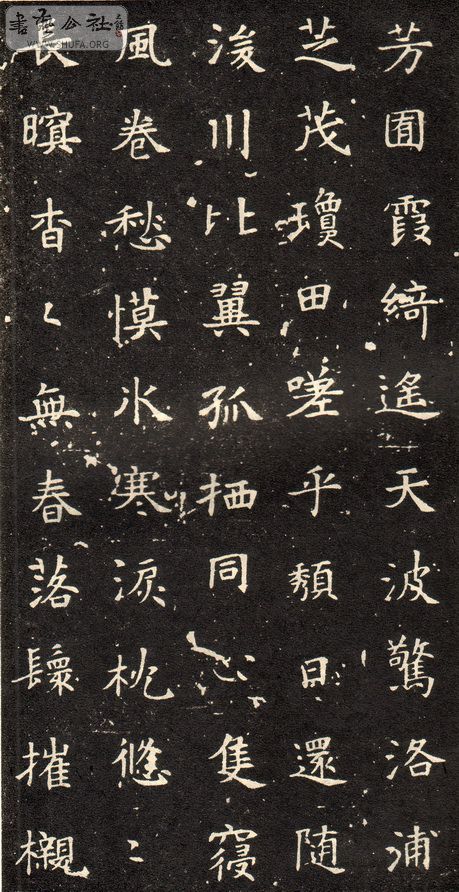 芳囿霞綺遙天波驚洛浦
芝茂瓊田嗟乎頹日還随
浚川比翼孤栖同心隻寢
風卷愁慔氷寒淚枕悠〻
長暝杳〻無春落鬟摧櫬
書法公社
WWW.SHUFA.ORG